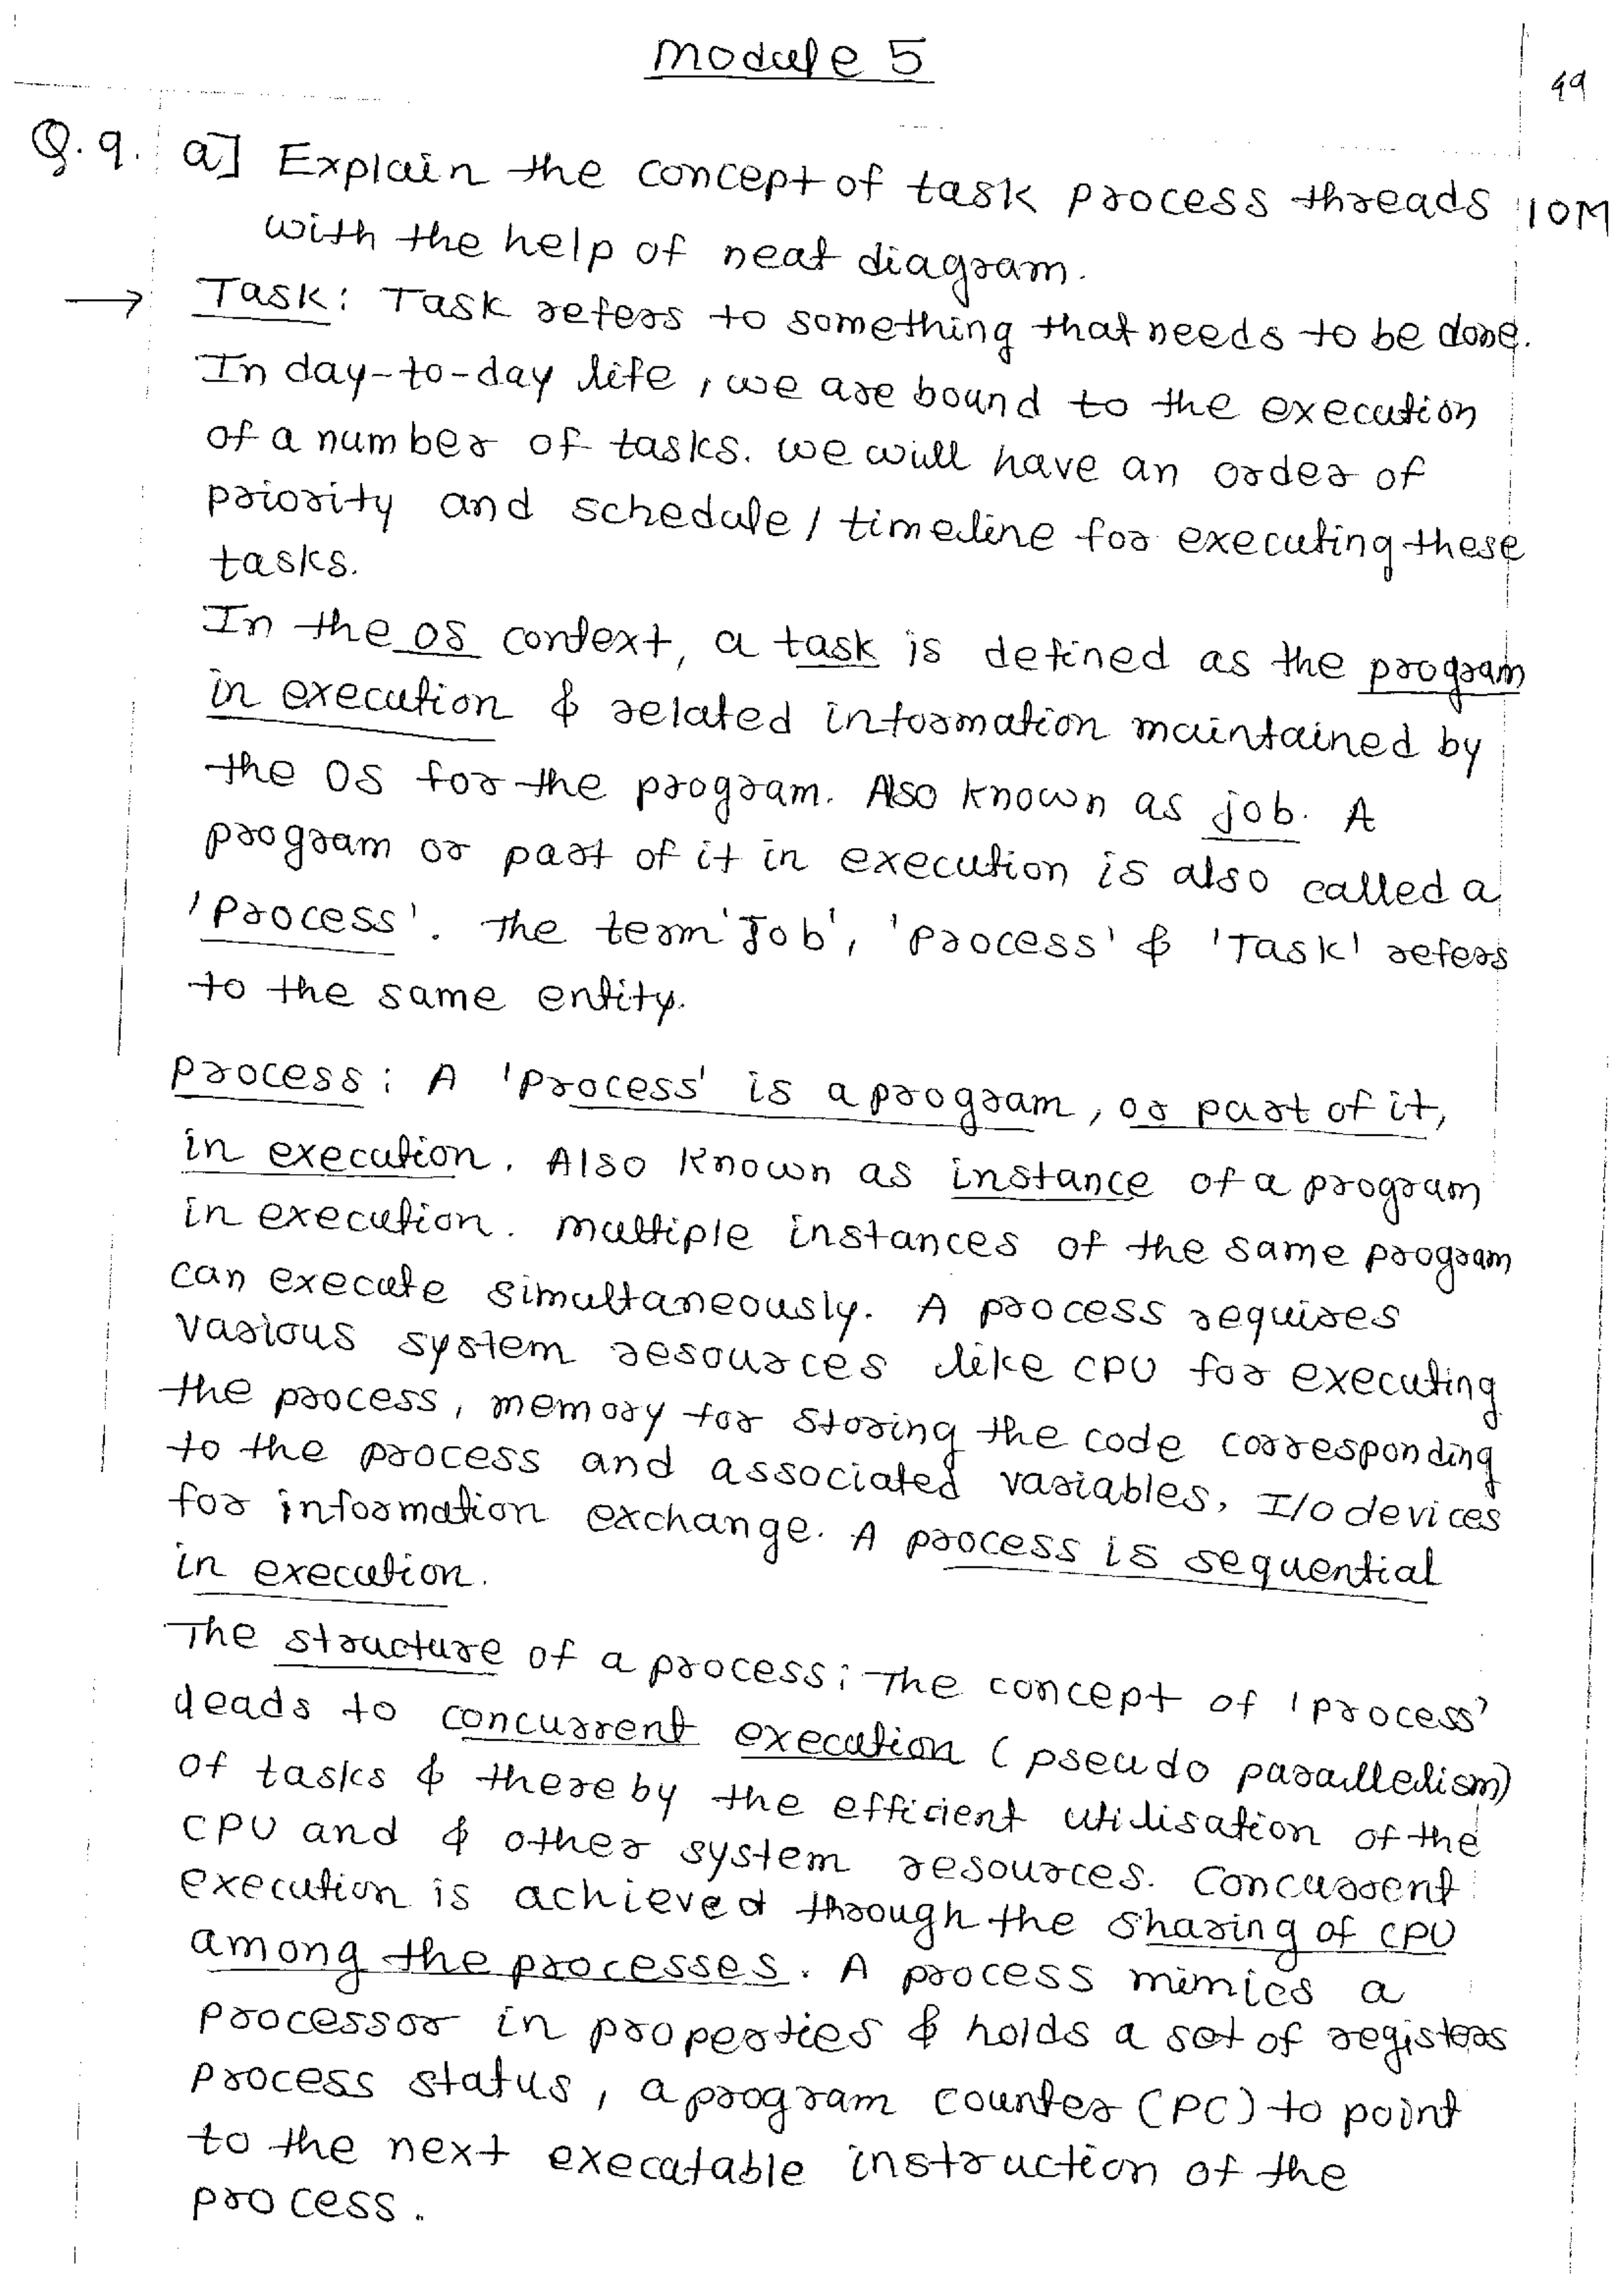 Module 5
49
Q.9. a] Explain the concept of task process threads 10M
with the help of neat diagram.
→ Task: Task refers to something that needs to be done.
In day-to-day life, we are bound to the execution
of a number of tasks. We will have an order of
priority and schedule / timeline for executing these
tasks.
In the OS context, a task is defined as the program
in execution & related information maintained by
the OS for the program. Also known as job. A
program or part of it in execution is also called a
'Process'. The term 'Job', 'Process' & 'Task' refers
to the same entity.
Process: A 'Process' is a program, or part of it,
in execution. Also known as instance of a program
in execution. Multiple instances of the same program
can execute simultaneously. A process requires
various system resources like CPU for executing
the process, memory for storing the code corresponding
to the process and associated variables, I/O devices
for information exchange. A process is sequential
in execution.
The structure of a process: The concept of 'Process'
leads to concurrent execution (pseudo parallelism)
of tasks & thereby the efficient utilisation of the
CPU and & other system resources. Concurrent
execution is achieved through the sharing of CPU
among the processes. A process mimics a
processor in properties & holds a set of registers
process status, a program counter (PC) to point
to the next executable instruction of the
process.